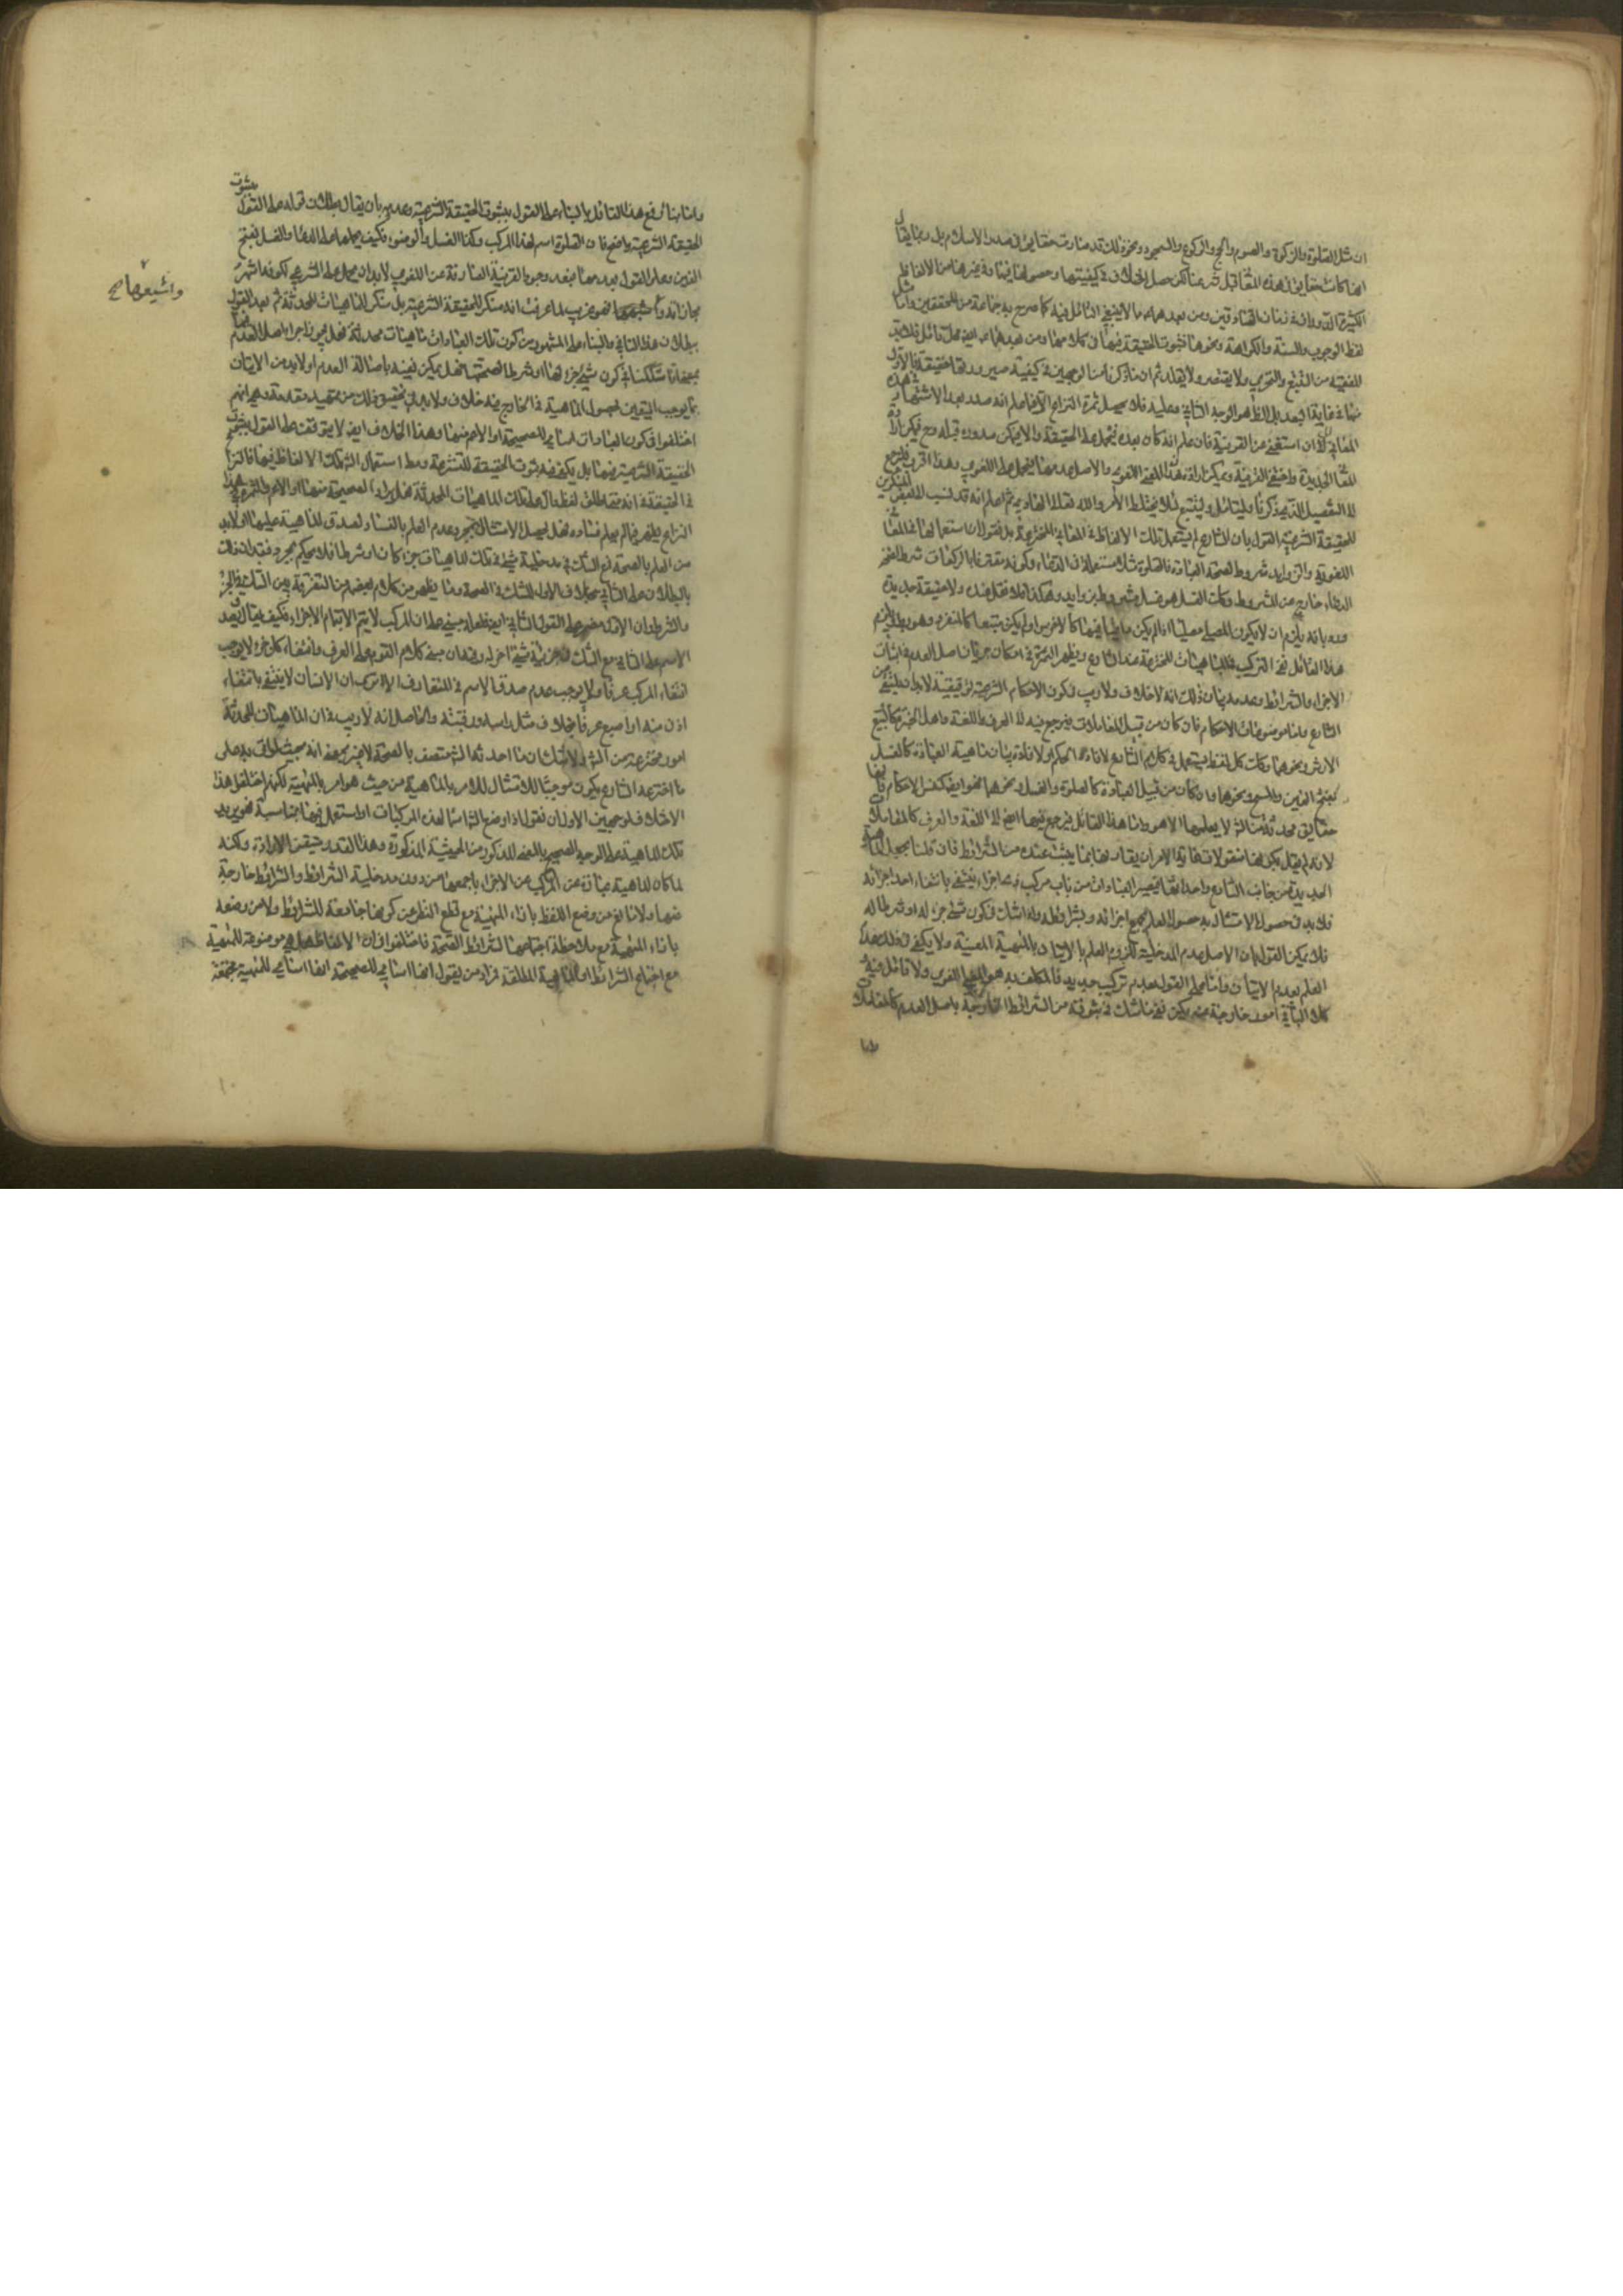 ان مثل الصلوة والزكوة والصوم والحج والركوع والسجود ونحو ذلك قد صارت حقايق في صدر الاسلام بل ربما يقال
انها كانت حقايق في هذه المعاني قبل شرعنا لكن حصل اختلاف في كيفيتها وحصولها فيها وفي غيرها من الالفاظ
الكثيرة الدوران في زمان الصادقين ومن بعدهما مما لا ينبغي التامل فيه كما صرح به جماعة من المحققين واما مثل
لفظ الوجوب والسنة والكراهة ونحوها فثبوت الحقيقة فيها في كلامهما ومن بعدهما ايضا محل تامل فلا بد
للفقيه من التتبع والتحري ولا يقتصر ولا يقلد ثم ان ما ذكرنا من الوجهين في كيفية صيرورتها حقيقة فالاول
منهما في غاية البعد بل الظاهر الوجه الثاني وعليه فلا يحصل ثمرة النزاع الا فيما علم انه صدر بعد الاشتهار في هذه
المعاني الى ان استغني عن القرينة فان علم انه كان بعده فيحمل على الحقيقة والا يمكن صدوره قبله وح فيمكن ارادة
المعنى الجديد واختفى القرينة ويمكن ارادة المعنى اللغوي والاصل عدمها فيحمل على اللغوي وهذا اقرب فليرجع
الى التفصيل الذي ذكرنا وليتامل وليتتبع لئلا يختلط الامر والله تعالى الهادي ثم اعلم انه قد نسب الى بعض المنكرين
للحقيقة الشرعية القول بان الشارع لم يستعمل تلك الالفاظ في المعاني المخترعة بل نقول ان استعمالها في المعنى
اللغوي والزوايد شروط لصحة العبادة فالصلوة مثلا مستعملة في الدعاء وكونه مقترنا بالركعات شرط لصحة
الدعاء خارج عن المشروط وكذلك الغسل هو غسل مشروط بزوايد وهكذا فلا نقل عنده ولا حقيقة جديدة
ورد بانه يلزم ان لا يكون المصلي مصليا اذا لم يكن داعيا فيها كالاخرس او لم يكن متبعا كالمنفرد وهو بط ويلزم
هذا القائل نفي التركيب في الماهيات المخترعة عند الشارع ويظهر الثمرة في امكان جريان اصل العدم في اثبات
الاجزاء والشرائط وعدمه بيان ذلك انه لا خلاف ولا ريب في كون الاحكام الشرعية توقيفية لا بد ان يتلقى من
الشارع واما موضوعات الاحكام فان كان من قبيل المعاملات فيرجع فيه الى العرف واللغة واهل الخبرة كالبيع
الارش ونحوها وكذلك كل لفظ يستعمل في كلام الشارع لافادة الحكم ولافادة بيان ماهية العبادة كالغسل
بفتح الغين والمسح ونحوهما وان كان من قبيل العبادة كالصلوة والغسل ونحوهما فهو ايضا كنفس الاحكام فانها
حقايق محدثة من الشارع لا يعلمها الا هو واما هذا القائل فيرجع فيها ايضا الى اللغة والعرف كالمعاملات
لانه لم يقل بكونها منقولات غاية الامر ان يقارنها بما يثبت عنده من الشرائط فان قلنا بجعل الماهية
الجديدة من جانب الشارع واحداثها فيصير العبادات من باب مركب ذي اجزاء ينتفي بانتفاء احد اجزائه
فلا بد في حصول الامتثال به حصول العلم بجميع اجزائه وشرائطه ولو شك في كون شيء جزء له او شرطا له
فلا يمكن القول بان الاصل عدم المدخلية للزوم العلم بالاتيان بالمهية المعينة ولا يكفي في ذلك عدم
العلم بعدم الاتيان واما على القول بعدم تركيب جديد فالمكلف به هو المعنى اللغوي ولا تامل فيه
كما ان الباقي امور خارجة عنه يمكن نفي ما شك في ثبوته من الشرائط الخارجة باصل العدم كالمعاملات
واما بناء رفع هذا التامل بالبناء على القول بثبوت الحقيقة الشرعية وعدمه بان يقال بطلان قوله على القول بثبوت
الحقيقة الشرعية واضح فان الصلوة اسم لهذا المركب وكذا الغسل والوضوء فكيف يحملها على الدعا والغسل بفتح
الغين وعلى القول بعدمها فبعد وجود القرينة الصارفة عن اللغوي لا بد ان يحمل على الشرعي لكونه اشهر
مجازاته واشيعها فهو غريب لما عرفت انه منكر للحقيقة الشرعية بل منكر للماهيات المحدثة ثم بعد القول
واشيعها صح
ببطلان هذا التامل والبناء على المشهور من كون تلك العبادات ماهيات محدثة فهل يجوز اجراء اصل العدم فيها
بمعنى انا اذا شككنا في كون شيء جزء لها او شرطا لصحتها فهل يمكن نفيه باصالة العدم او لا بد من الاتيان
بما يوجب اليقين بحصول الماهية في الخارج فيه خلاف ولا بد في تحقيق ذلك من تمهيد مقدمة وهي انهم
اختلفوا في كون العبادات اسامي للصحيحة او الاعم منها وهذا الخلاف ايضا لا يتوقف على القول بثبوت
الحقيقة الشرعية فيها بل يكفي فيه ثبوت الحقيقة للمتشرعة ومطلق استعمال الشارع تلك الالفاظ فيها فالنزاع
في الحقيقة في انه متى اطلق لفظ دال على تلك الماهيات المحدثة فهل يراد الصحيحة منها او الاعم والثمرة في هذا
النزاع يظهر فيما لم يعلم فساده فهل يحصل الامتثال بمجرد عدم العلم بالفساد لصدق الماهية عليها او لا بد
من العلم بالصحة فمع الشك في مدخلية شيء في تلك الماهيات جزء كان او شرطا فلا يحكم بمجرد فقدان ذلك
بالبطلان على الثاني بخلاف الاول للشك في الصحة وما يظهر من كلام بعضهم من التفرقة بين الشك في الجزء
والشرط
انتفاء المركب عرفا ولا يوجب عدم صدق الاسم في المتعارف الا ترى ان الانسان لا ينتفي بانتفاء
اذن منه او اصبع عرفا بخلاف مثل راسه ورقبته والحاصل انه لا ريب في ان الماهيات المحدثة
امور مخترعة من الشارع ولا شك ان ما احدثه الشارع متصف بالصحة لا غير بمعنى انه بحيث لو اتى به على
ما اخترعه الشارع يكون موجبا للامتثال للامر بالماهية من حيث هو امر بالمهية لكنهم اختلفوا هذا
الاختلاف لوجهين الاول ان نقول اذا وضع الشارع اسما لهذه المركبات او استعمل فيها بمناسبة فهو يريد
تلك الماهية على الوجه الصحيح بالمعنى المذكور من الحيثية المذكورة وهذا القدر متيقن الارادة ولكنه
لما كان الماهية عبارة عن المركب عن الاجزاء باجمعها من دون مدخلية الشرائط والشرائط خارجة
عنها ولا مانع من وضع اللفظ بازاء المهية مع قطع النظر عن كونها جامعة للشرائط ولا من وضعه
بازاء المهية مع ملاحظة اجتماعها لشرائط الصحة فاختلفوا في ان الالفاظ هل هي موضوعة للمهية
مع اجتماع الشرائط او للماهية المطلقة فمراد من يقول انها اسامي للصحيحة انها اسامي للمهية مجتمعة